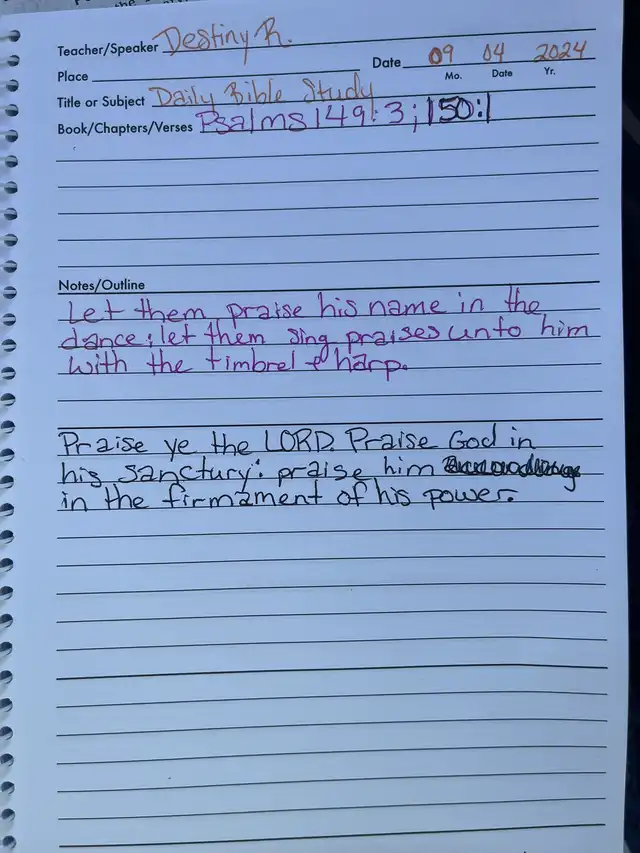 Teacher/Speaker Destiny R.
Place
Date 09 04 2024
Mo. Date Yr.
Title or Subject Daily Bible Study
Book/Chapters/Verses Psalms 149:3; 150:1
Notes/Outline
Let them praise his name in the
dance; let them sing praises unto him
with the timbrel & harp.
Praise ye the LORD. Praise God in
his sanctury: praise him
in the firmament of his power.